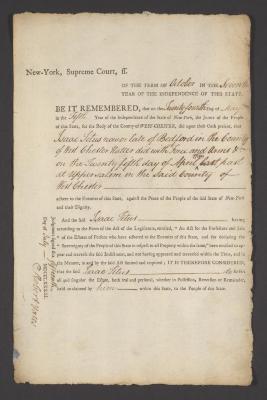 New-York, Supreme Court, ff.
OF THE TERM OF October IN THE Seventh
YEAR OF THE INDEPENDENCE OF THIS STATE.
BE IT REMEMBERED, that on the Twenty fourth Day of May
in the Fifth Year of the Independence of the State of New-York, the Jurors of the People
of this State, for the Body of the County of WEST-CHESTER, did upon their Oath present, that
Isaac Titus now or late of Bedford in the County
of West Chester Hatter did with Force and Arms &c
on the Twenty fifth day of April last past
at Uppersalem in the said County of
West Chester
adhere to the Enemies of this State, against the Peace of the People of the said State of New-York
and their Dignity.
And the said Isaac Titus having
according to the Form of the Act of the Legislature, entitled, "An Act for the Forfeiture and Sale
"of the Estates of Persons who have adhered to the Enemies of this State, and for declaring the
"Sovereignty of the People of this State in respect to all Property within the same," been notified to ap-
pear and traverse the said Indictment, and not having appeared and traversed within the Time, and in
the Manner, in and by the said Act limited and required; IT IS THEREFORE CONSIDERED,
that the said Isaac Titus do forfeit
all and singular the Estate, both real and personal, whether in Possession, Reversion or Remainder,
held or claimed by him within this State, to the People of this State.
Judgment signed this fifteenth
Day of July
MDCCLXXXIII.